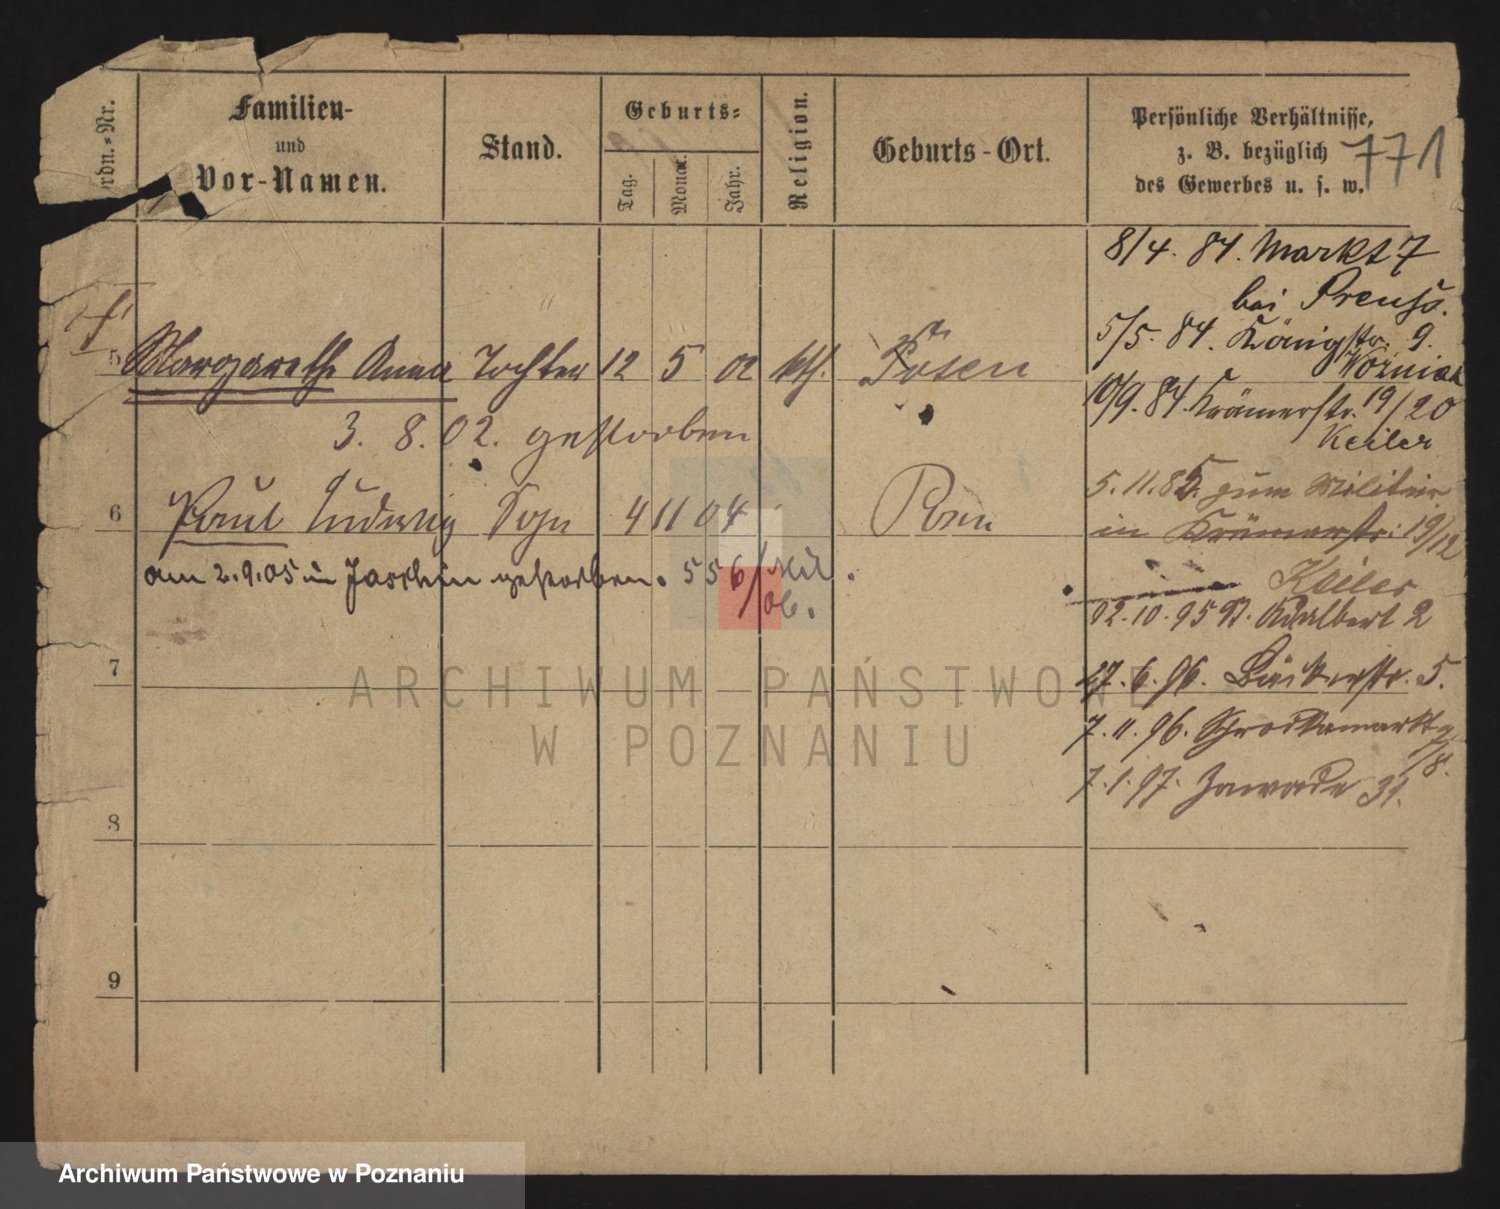 Ordn.=Nr.
Familien-
und
Vor-Namen.
Stand.
Geburts=
Tag.
Monat.
Jahr.
Religion.
Geburts-Ort.
Persönliche Verhältnisse,
z. B. bezüglich
des Gewerbes u. s. w.
771
5 Margarethe Anna Tochter 12 5 02 kth. Posen
3. 8. 02. gestorben
6 Paul Ludwig Sohn 4 11 04 Posen
am 2.9.05 in gestorben. 556/
7
8
9
8/4. 84. Markt 7
bei Preuß.
5/5. 84. Königstr. 9.
Wozniak
10/9. 84. Krämerstr. 19/20
Keiler
5.11.85. zum Militair
in Krämerstr. 19/12
Keiler
02.10.95 St. Adalbert 2
27.6.96. Bäckerstr. 5.
7.11.96. Schrodkamarkt 7/8.
7.1.97. Zawade 31.
ARCHIWUM PAŃSTWOWE
W POZNANIU
Archiwum Państwowe w Poznaniu